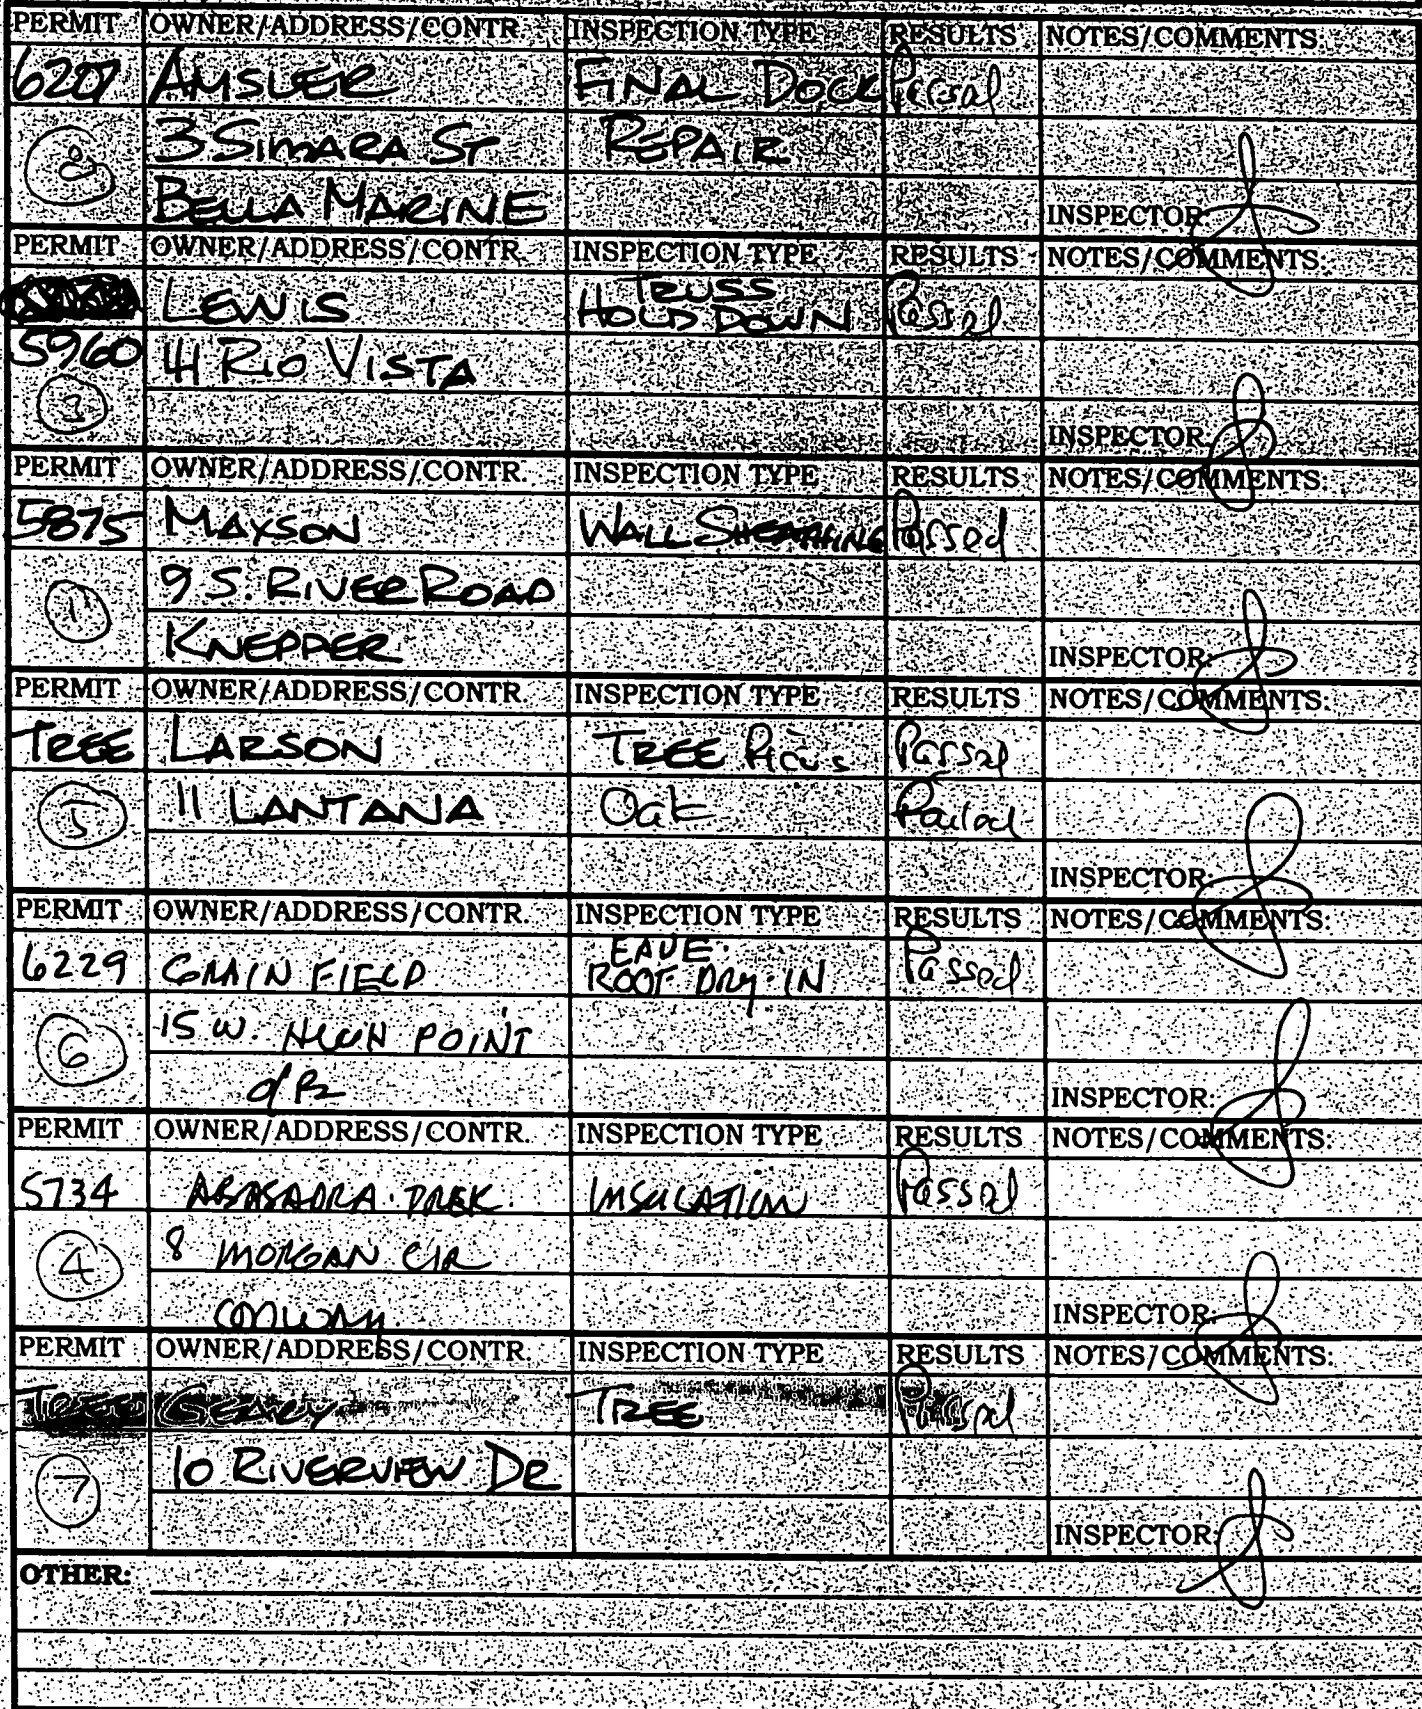 PERMIT OWNER/ADDRESS/CONTR. INSPECTION TYPE RESULTS NOTES/COMMENTS:
6207 AMSLER FINAL DOCK Passed
3 SIMARA ST REPAIR
BELLA MARINE INSPECTOR:
PERMIT OWNER/ADDRESS/CONTR. INSPECTION TYPE RESULTS NOTES/COMMENTS:
LEWIS TRUSS HOLD DOWN Passed
5960 RIO VISTA
3 INSPECTOR:
PERMIT OWNER/ADDRESS/CONTR. INSPECTION TYPE RESULTS NOTES/COMMENTS:
5875 MAYSON WALL SHEATHING Passed
1 9 S. RIVER ROAD
KNEPPER INSPECTOR:
PERMIT OWNER/ADDRESS/CONTR. INSPECTION TYPE RESULTS NOTES/COMMENTS:
TREE LARSON TREE Ficus Passed
5 11 LANTANA Oak Failed
INSPECTOR:
PERMIT OWNER/ADDRESS/CONTR. INSPECTION TYPE RESULTS NOTES/COMMENTS:
6229 EAVE. ROOF DRY-IN Passed
6 15 W. HIGH POINT
O/B INSPECTOR:
PERMIT OWNER/ADDRESS/CONTR. INSPECTION TYPE RESULTS NOTES/COMMENTS:
5734 INSULATION Passed
4 8 MORGAN CIR
CONWAY INSPECTOR:
PERMIT OWNER/ADDRESS/CONTR. INSPECTION TYPE RESULTS NOTES/COMMENTS:
TREE GEARY TREE Passed
7 10 RIVERVIEW DR
INSPECTOR:
OTHER: